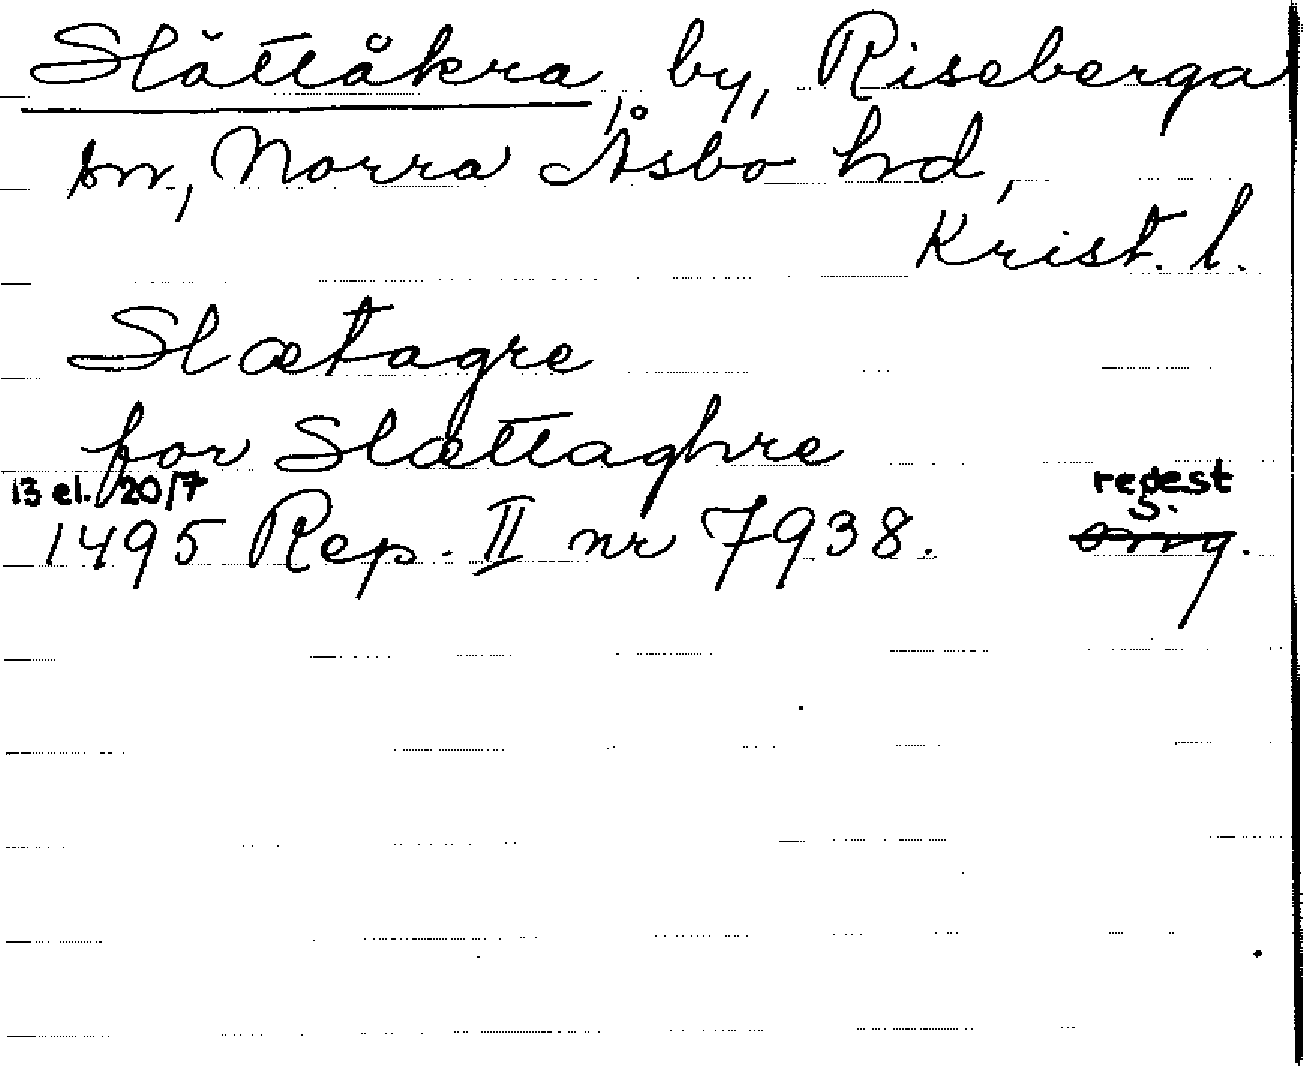 Slättåkra, by, Riseberga
sn, Norra Åsbo hd,
Krist. l.
Slætagre
for Slættaghre
13 el. 20/7 regest
1495 Rep. II nr 7938. s.